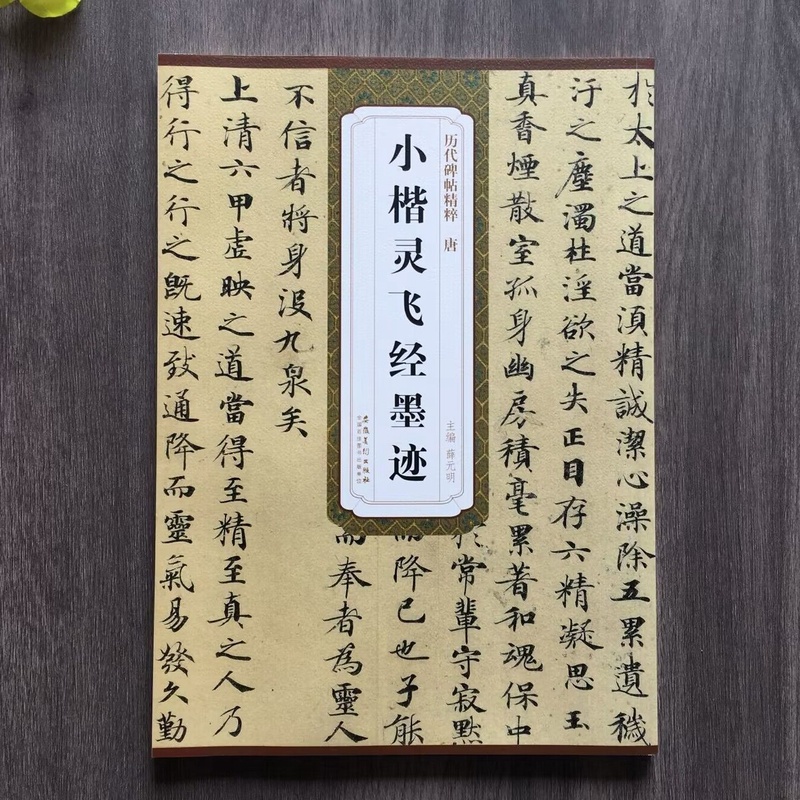 於太上之道當湏精誠潔心澡除五累遺穢
汙之塵濁杜淫欲之失正目存六精凝思玉
真香煙散室孤身幽房積毫累著和魂保中
於常輩守寂默
而降已也子能
而奉者為靈人
历代碑帖精粹 唐
小楷灵飞经墨迹
主编 薛元明
安徽美术出版社
全国百佳图书出版单位
不信者將身没九泉矣
上清六甲虚映之道當得至精至真之人乃
得行之行之既速致通降而靈氣易發久勤